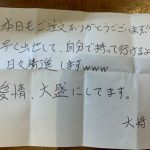 本日もご注文ありがとうございます!
早く出して、自分で持って行けるよ
日々精進しますwww
愛情、大盛にしてます。
大将